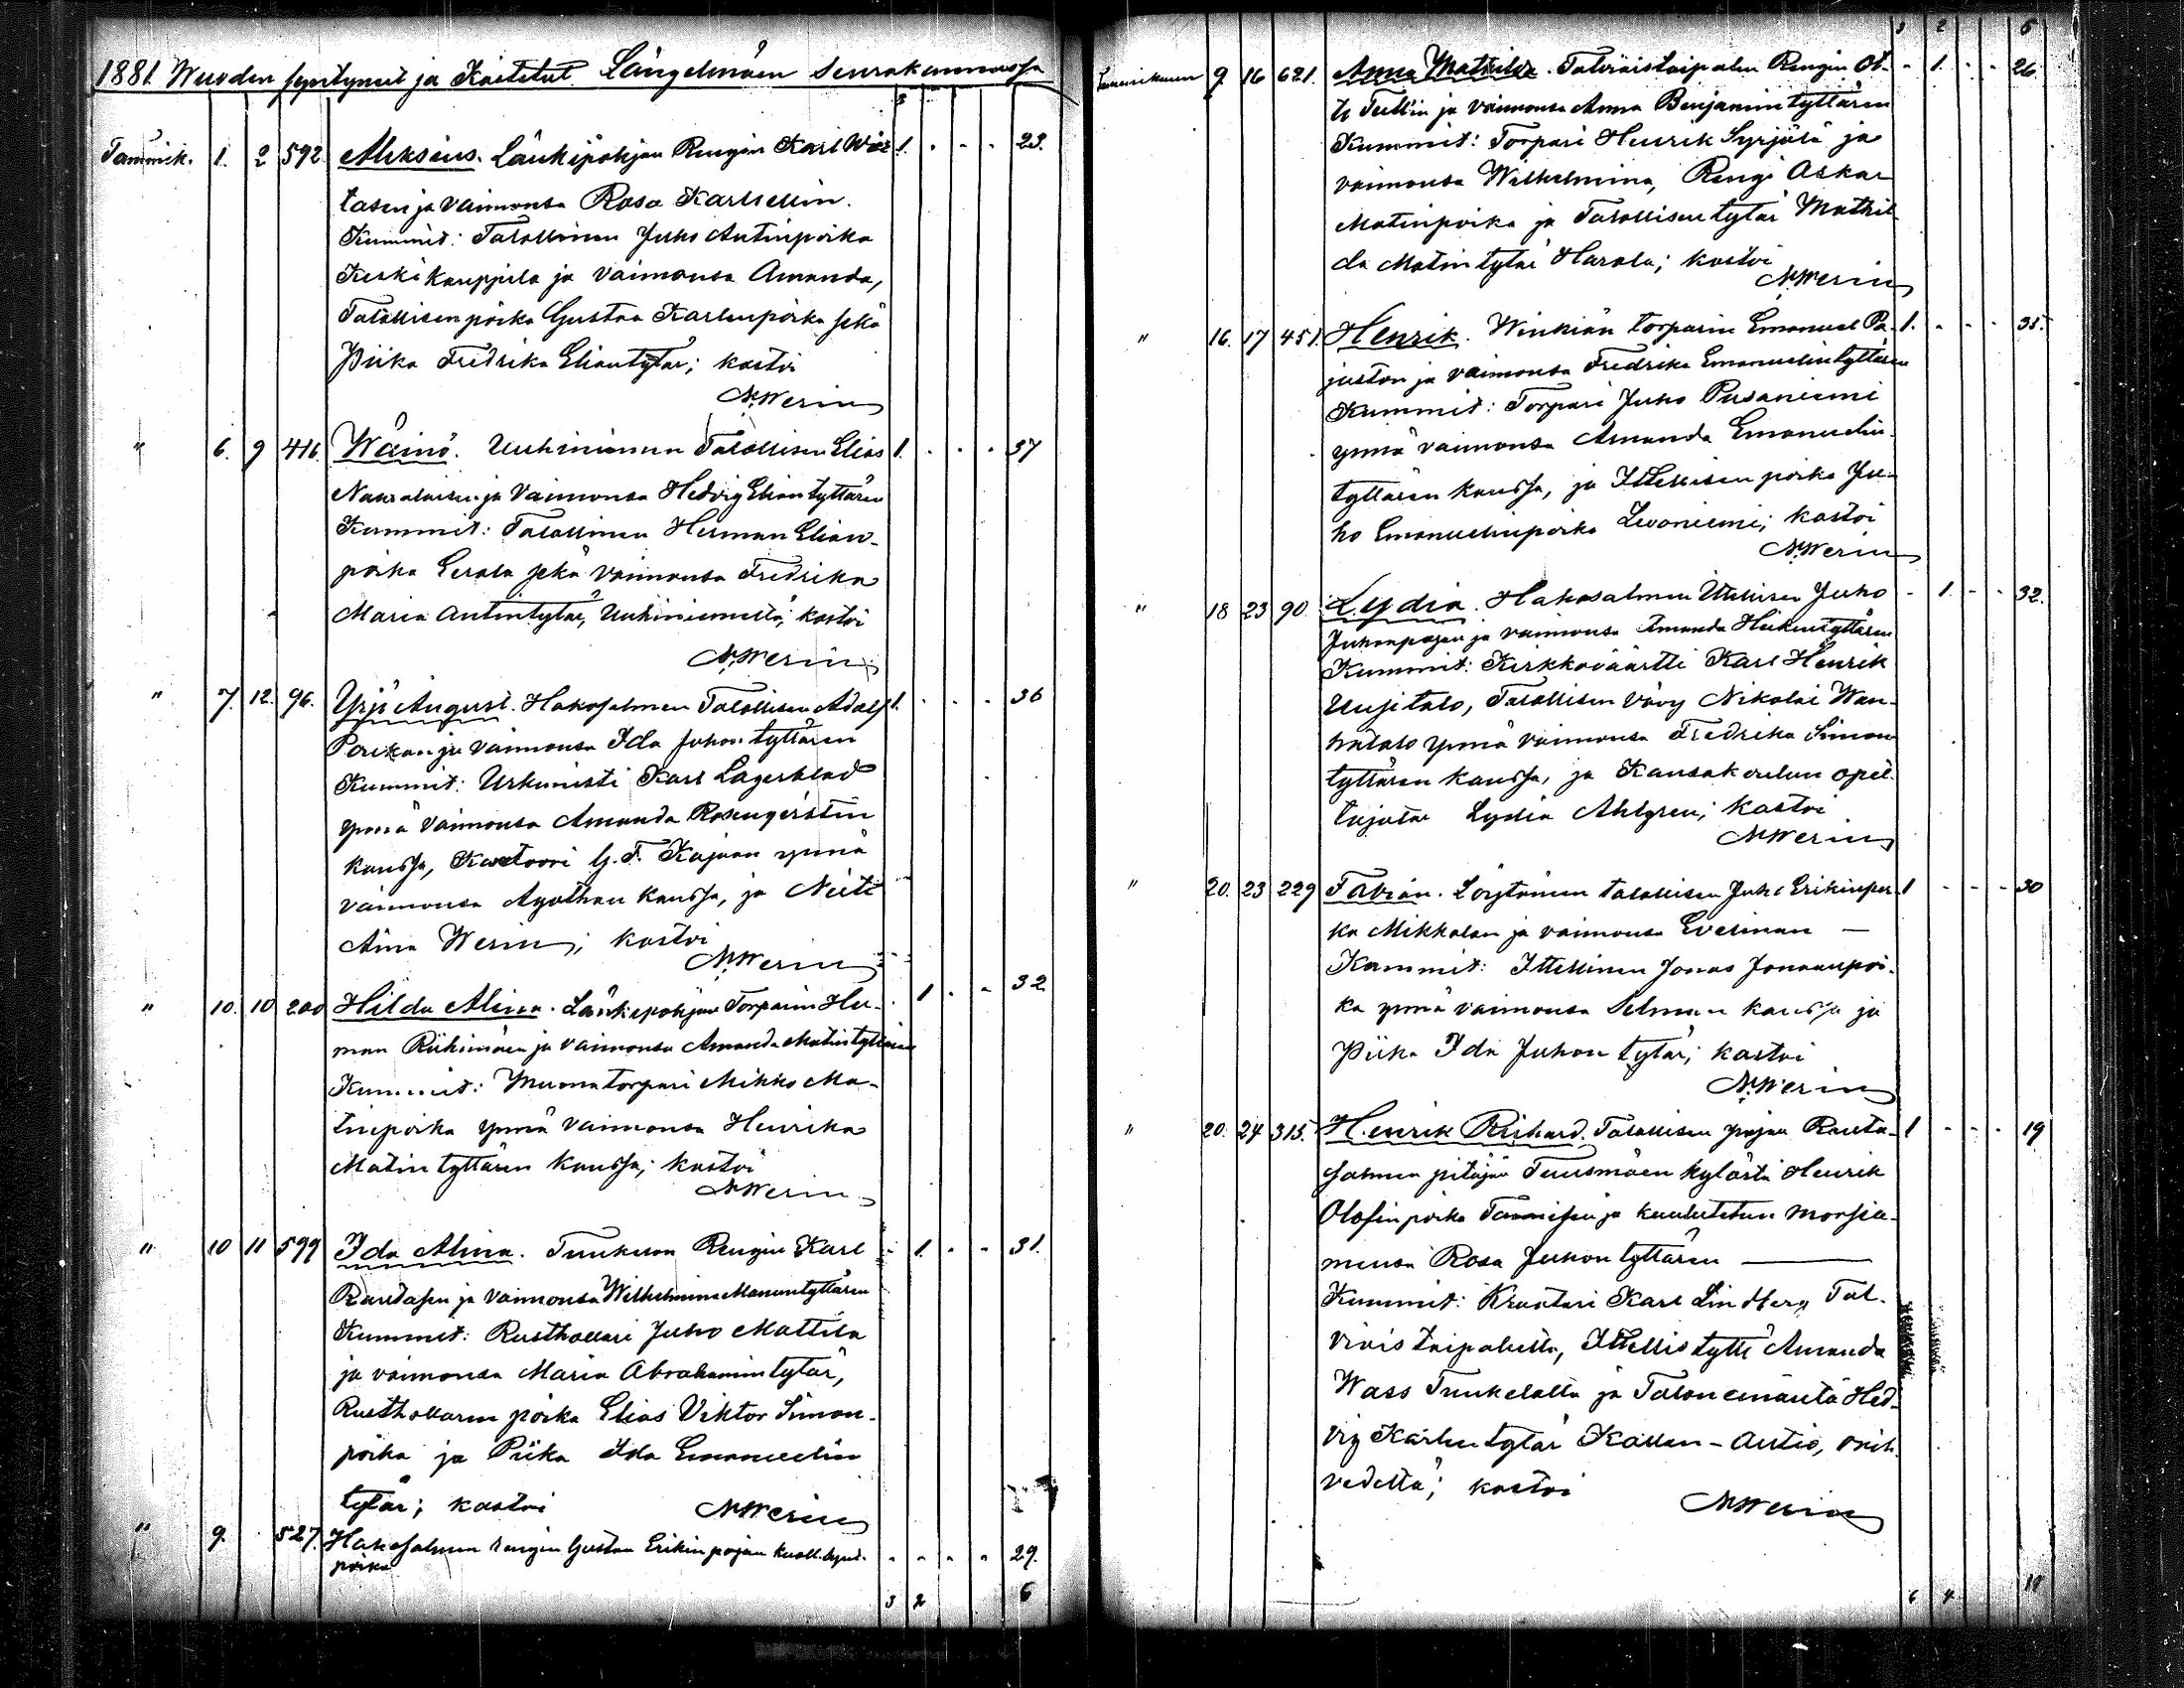 1881 Wuoden syntyneet ja Kastetut Längelmäen Seurakunnassa
Tammik. 1. 2 592 Aleksius. Länkipohjan Rengin Karl Wir- 1. - - - 23.
tasen ja vaimonsa Rosa Karlsellin.
Kummit: Talollinen Juho Antinpoika
Keskikauppila ja vaimonsa Amanda,
Talollisen poika Gustaa Karlenpoika sekä
Piika Fredrika Eliantytär; kastoi
N. Werin
" 6. 9 416. Wäinö. Uuhiniemen Talollisen Elias 1. - - - 37
ja Vaimonsa Hedvig Elian tyttären
Kummit: Talollinen Herman Elian-
poika Eerola sekä vaimonsa Fredrika
Maria Antintytär, Uuhiniemeltä; kastoi
N. Werin
" 7. 12. 96. Yrjö August. Hakosalmen Talollisen Adolf 1. - - - 36
ja vaimonsa Ida Juhon tyttären
Kummit: Urkunisti Karl Lagerblad
ynnä vaimonsa Amanda Rosenqvistin
kanssa, Kantoori G. F. Kajaan ynnä
vaimonsa Agathan kanssa, ja Neiti
Aina Werin; kastoi
N. Werin
" 10. 10 200 Hilda Alina. Länkipohjan Torparin Her- - 1 - - 32
man Riihimäen ja vaimonsa Amanda Matintyttären
Kummit: Muonatorpari Mikko Ma-
tinpoika ynnä vaimonsa Henrika
Matin tyttären kanssa; kastoi
N. Werin
" 10 11 599 Ida Alina. Tunkelon Rengin Karl - 1. - - 31.
ja vaimonsa Wilhelmina Manuntyttären
Kummit: Rusthollari Juho Mattila
ja vaimonsa Maria Abrahamin tytär,
Rusthollarin poika Elias Viktor Simon-
poika ja Piika Ida Emanuelin
tytär; kastoi N. Werin
" 9. 527. Hakosalmen rengin Gustaa Erikin pojan kuoll. synt. - - - - 29.
poika
3 2 6
3 2 6
Tammikuun 9 16 621. Anna Mathilda. Talviaistaipaleen Rengin Ot- - 1. - - 26.
to ja vaimonsa Anna Benjamin tyttären
Kummit: Torpari Henrik Syrjälä ja
vaimonsa Wilhelmina, Rengi Oskar
Matinpoika ja Talollisen tytär Mathil-
da Matin tytär Harala; kastoi
N. Werin
" 16. 17 451. Henrik. Winkiän torparin Emanuel Pa- 1. - - - 35.
juston ja vaimonsa Fredrika Emanuelin tyttären
Kummit: Torpari Juho Pusaniemi
ynnä vaimonsa Amanda Emanuelin
tyttären kanssa, ja Itsellisen poika Ju-
ho Emanuelinpoika Levoniemi; kastoi
N. Werin
" 18 23 90. Lydia. Hakosalmen Itsellisen Juho - 1. - - 32.
Juhonpojan ja vaimonsa Amanda Heikintyttären
Kummit: Kirkkoväärtti Karl Henrik
Uusitalo, Talollisen vävy Nikolai Wan-
hatalo ynnä vaimonsa Fredrika Simon
tyttären kanssa, ja Kansakoulun opet-
tajatar Lydia Ahlgren; kastoi
N. Werin
" 20. 23 229 Fabian. Löytänen talollisen Juho Erikinpoi- 1 - - - 30
ka Mikkolan ja vaimonsa Evelinan —
Kummit: Itsellinen Jonas Jonaanpoi-
ka ynnä vaimonsa Selman kanssa ja
Piika Ida Juhon tytär; kastoi
N. Werin
" 20. 24 315. Henrik Rikhard. Talollisen pojan Rauta- 1 - - - 19
salmen pitäjän Tuusmäen kylästä Henrik
Olofin poika ja kuulutetun morsia-
mensa Rosa Juhon tyttären —
Kummit: Kraatari Karl Lindberg Tal-
viais taipaleelta, Itsellis tyttö Amanda
Wass Tunkelolta ja Talon emäntä Hed-
vig Karlen tytär Kallen-Autio, Orih-
vedeltä; kastoi N. Werin
6 4 11